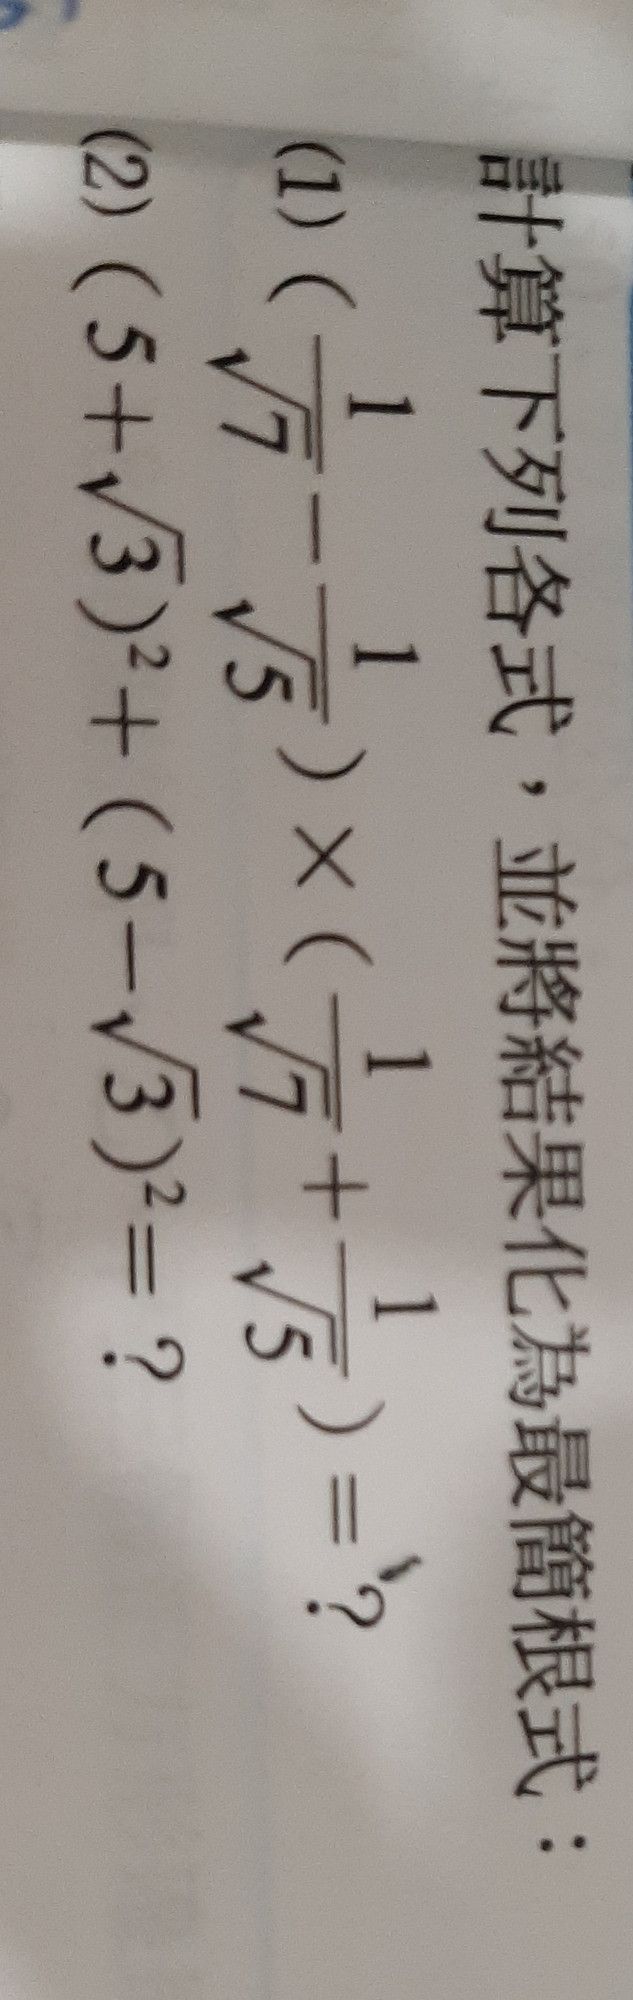 計算下列各式，並將結果化為最簡根式：
(1) ( 1/√7 − 1/√5 ) × ( 1/√7 + 1/√5 ) = ?
(2) ( 5 + √3 )² + ( 5 − √3 )² = ?